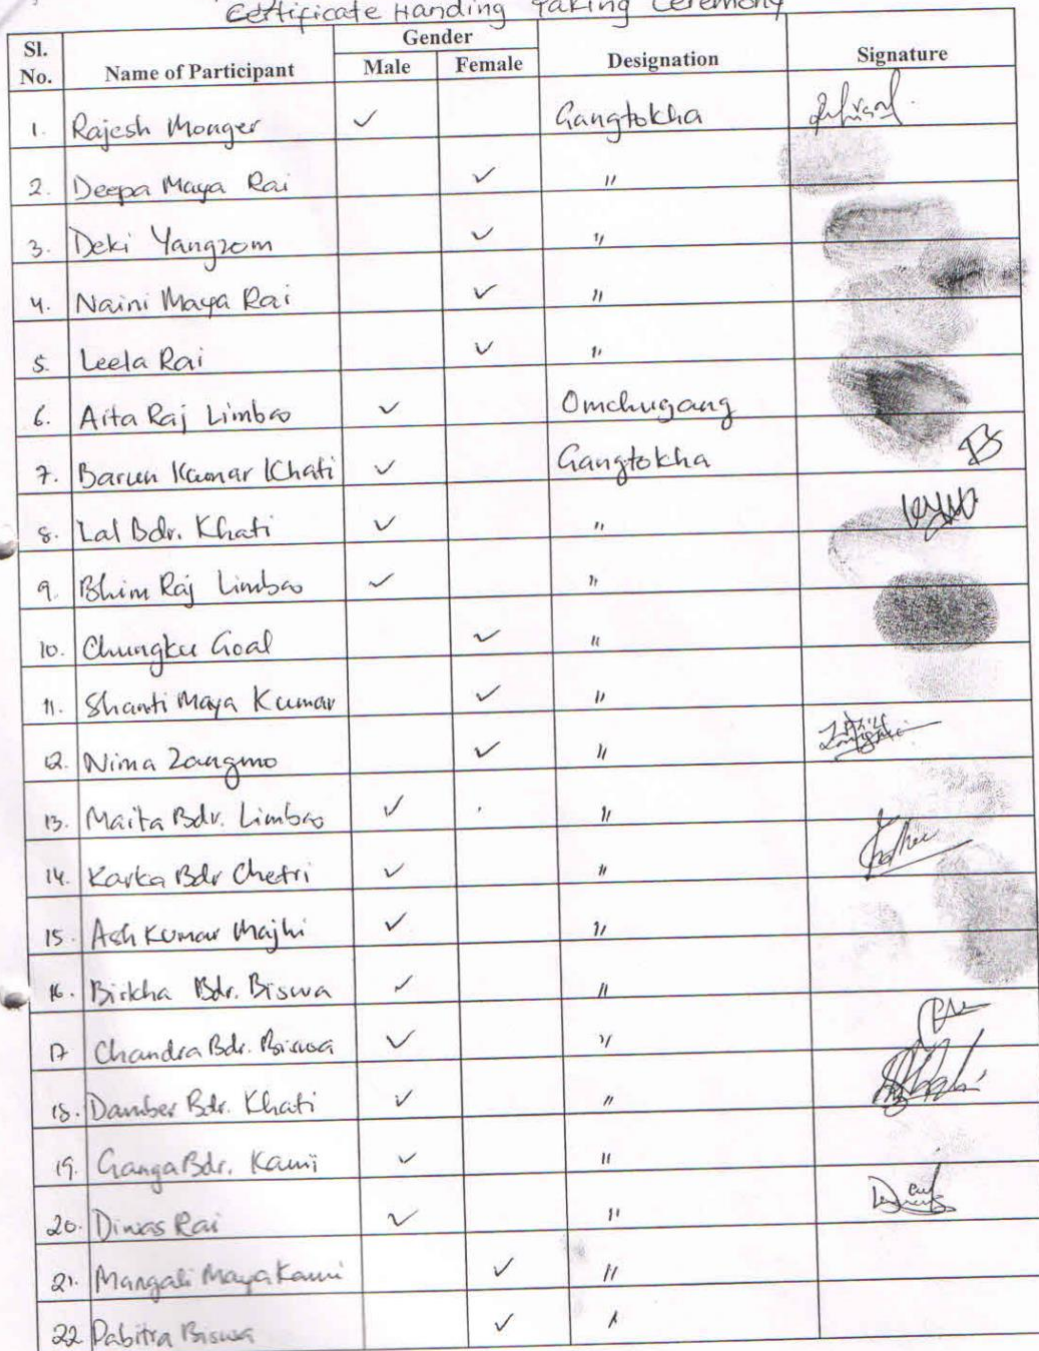 Certificate Handing Taking Ceremony
Sl. No. Name of Participant Gender Male Female Designation Signature
1. Rajesh Monger ✓ Gangtokha
2. Deepa Maya Rai ✓ "
3. Deki Yangzom ✓ "
4. Naini Maya Rai ✓ "
5. Leela Rai ✓ "
6. Aita Raj Limboo ✓ Omchugang
7. Barun Kumar Khati ✓ Gangtokha
8. Lal Bdr. Khati ✓ "
9. Bhim Raj Limboo ✓ "
10. Chungku Goal ✓ "
11. Shanti Maya Kumar ✓ "
12. Nima Zangmo ✓ "
13. Maita Bdr. Limboo ✓ "
14. Karka Bdr Chetri ✓ "
15. Ash Kumar Majhi ✓ "
16. Birkha Bdr. Biswa ✓ "
17 Chandra Bdr. Biswa ✓ "
18. Damber Bdr. Khati ✓ "
19. Ganga Bdr. Kami ✓ "
20. Diwas Rai ✓ "
21. Mangali Maya Kami ✓ "
22 Pabitra Biswa ✓ "